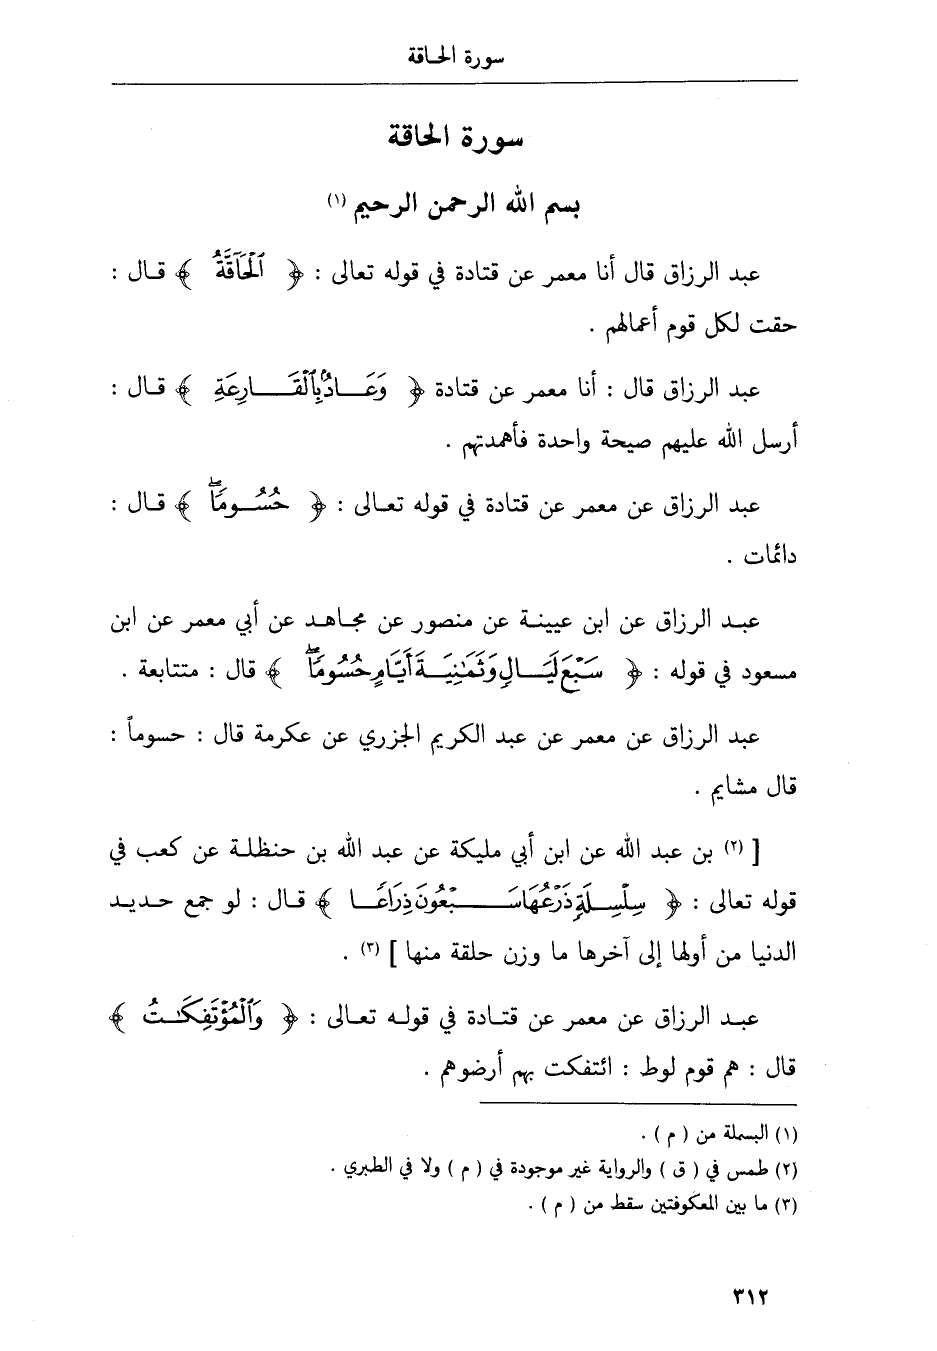 سورة الحاقة
سورة الحاقة
بسم الله الرحمن الرحيم (١)
عبد الرزاق قال أنا معمر عن قتادة في قوله تعالى : ﴿ ٱلْحَآقَّةُ ﴾ قال :
حقت لكل قوم أعمالهم .
عبد الرزاق قال : أنا معمر عن قتادة ﴿ وَعَادٌۢ بِٱلْقَارِعَةِ ﴾ قال :
أرسل الله عليهم صيحة واحدة فأهمدتهم .
عبد الرزاق عن معمر عن قتادة في قوله تعالى : ﴿ حُسُومًا ۖ ﴾ قال :
دائمات .
عبد الرزاق عن ابن عيينة عن منصور عن مجاهد عن أبي معمر عن ابن
مسعود في قوله : ﴿ سَبْعَ لَيَالٍ وَثَمَٰنِيَةَ أَيَّامٍ حُسُومًا ۖ ﴾ قال : متتابعة .
عبد الرزاق عن معمر عن عبد الكريم الجزري عن عكرمة قال : حسوماً :
قال مشايم .
[ (٢) بن عبد الله عن ابن أبي مليكة عن عبد الله بن حنظلة عن كعب في
قوله تعالى : ﴿ سِلْسِلَةٍ ذَرْعُهَا سَبْعُونَ ذِرَاعًا ﴾ قال : لو جمع حديد
الدنيا من أولها إلى آخرها ما وزن حلقة منها ] (٣) .
عبد الرزاق عن معمر عن قتادة في قوله تعالى : ﴿ وَٱلْمُؤْتَفِكَٰتُ ﴾
قال : هم قوم لوط : ائتفكت بهم أرضوهم .
(١) البسملة من ( م ) .
(٢) طمس في ( ق ) والرواية غير موجودة في ( م ) ولا في الطبري .
(٣) ما بين المعكوفتين سقط من ( م ) .
٣١٢